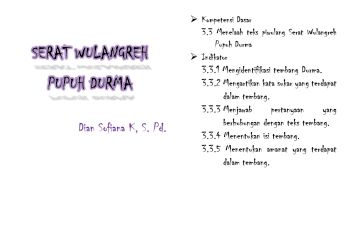 SERAT WULANGREH
PUPUH DURMA
Dian Sofiana K, S. Pd.
➢ Kompetensi Dasar
3.3 Menelaah teks piwulang Serat Wulangreh
Pupuh Durma
➢ Indikator
3.3.1 Mengidentifikasi tembang Durma.
3.3.2 Mengartikan kata sukar yang terdapat
dalam tembang.
3.3.3 Menjawab pertanyaan yang
berhubungan dengan teks tembang.
3.3.4 Menentukan isi tembang.
3.3.5 Menentukan amanat yang terdapat
dalam tembang.